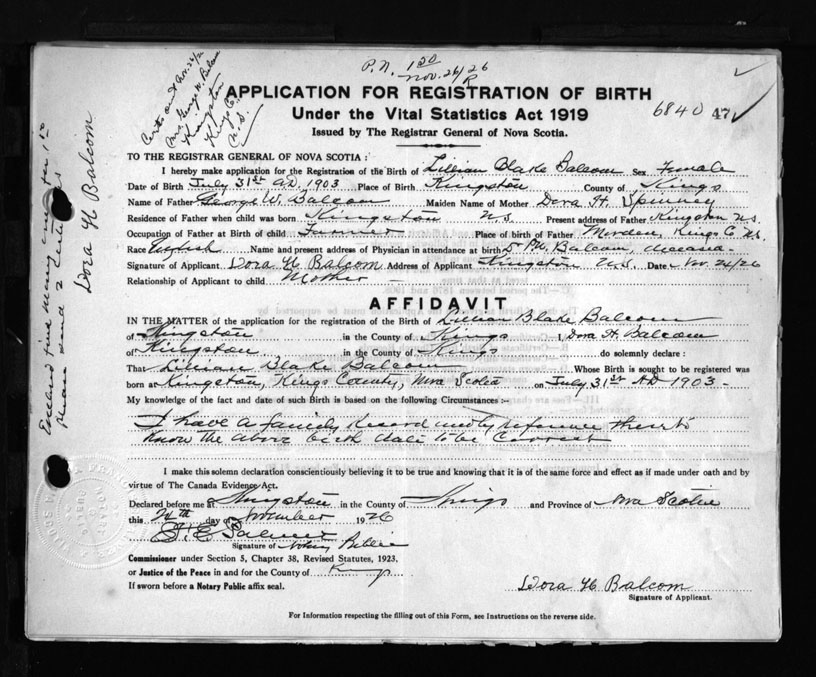 P.N. 1.50
Nov. 26/26
R
Certs out Nov. 26/26
Mrs George W. Balcom
Kingston
Kings Co.
N.S.
APPLICATION FOR REGISTRATION OF BIRTH
Under the Vital Statistics Act 1919
Issued by The Registrar General of Nova Scotia.
6840 47
TO THE REGISTRAR GENERAL OF NOVA SCOTIA :
I hereby make application for the Registration of the Birth of Lillian Blake Balcom Sex Female
Date of Birth July 31st A.D. 1903 Place of Birth Kingston County of Kings
Name of Father George W. Balcom Maiden Name of Mother Dora H. Spinney
Residence of Father when child was born Kingston NS Present address of Father Kingston N.S.
Occupation of Father at Birth of child Farmer Place of birth of Father Morden, Kings Co N.S.
Race English Name and present address of Physician in attendance at birth P.N. Balcom,
Signature of Applicant Dora H Balcom Address of Applicant Kingston N.S. Date Nov. 24/26
Relationship of Applicant to child Mother
AFFIDAVIT
IN THE MATTER of the application for the registration of the Birth of Lillian Blake Balcom
of Kingston in the County of Kings I, Dora H. Balcom
of Kingston in the County of Kings do solemnly declare :
That Lillian Blake Balcom Whose Birth is sought to be registered was
born at Kingston, Kings County, Nova Scotia on July 31st AD 1903
My knowledge of the fact and date of such Birth is based on the following Circumstances :-
I have a family record and by reference thereto
know the above birth date to be correct
I make this solemn declaration conscientiously believing it to be true and knowing that it is of the same force and effect as if made under oath and by
virtue of The Canada Evidence Act.
Declared before me at Kingston in the County of Kings and Province of Nova Scotia
this 24th day of November 1926
Signature of Notary Public
Commissioner under Section 5, Chapter 38, Revised Statutes, 1923,
or Justice of the Peace in and for the County of Kings
If sworn before a Notary Public affix seal.
Dora H Balcom
Signature of Applicant.
For Information respecting the filling out of this Form, see Instructions on the reverse side.
Enclosed find money order, 1.50
Please send 2 certificates
Dora H Balcom